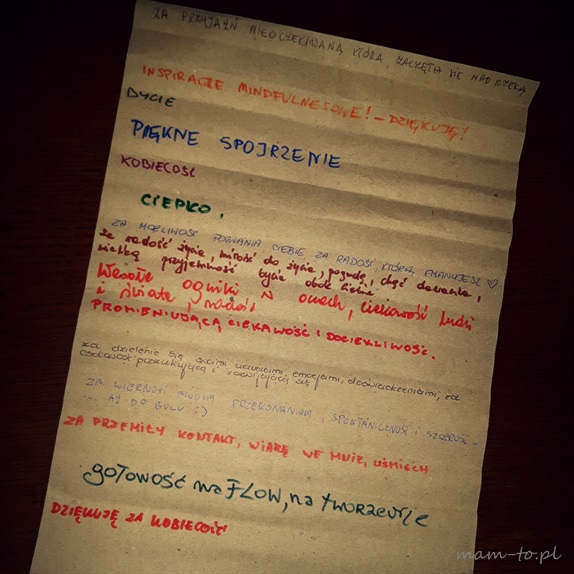 ZA PRZYJAŹŃ NIEOCZEKIWANĄ KTÓRA ZACZĘŁA SIĘ NAD RZEKĄ
INSPIRACJE MINDFULNESOWE! - DZIĘKUJĘ!
ŻYCIE
PIĘKNE SPOJRZENIE
KOBIECOŚĆ
CIEPŁO.
ZA MOŻLIWOŚĆ POZNANIA CIEBIE ZA RADOŚĆ KTÓRĄ EMANUJESZ ♡
że radość życia, miłość do życia, pogodę, chęć dawania,
wielką przyjemność bycia obok Ciebie
Wesołe ogniki w oczach, ciekawość ludzi
i świata, radość
PROMIENIUJĄCĄ CIEKAWOŚĆ I DOCIEKLIWOŚĆ.
za dzielenie się swoimi uczuciami, emocjami, doświadczeniami, za
osobowość poszukującą i rozwijającą się
ZA WIERNOŚĆ SWOIM PRZEKONANIOM, SPONTANICZNOŚĆ I SZCZEROŚĆ -
... AŻ DO BÓLU :)
ZA PRZEMIŁY KONTAKT, WIARĘ WE MNIE, UŚMIECH
gotowość na FLOW, na tworzenie
DZIĘKUJĘ ZA KOBIECOŚĆ
mam-to.pl